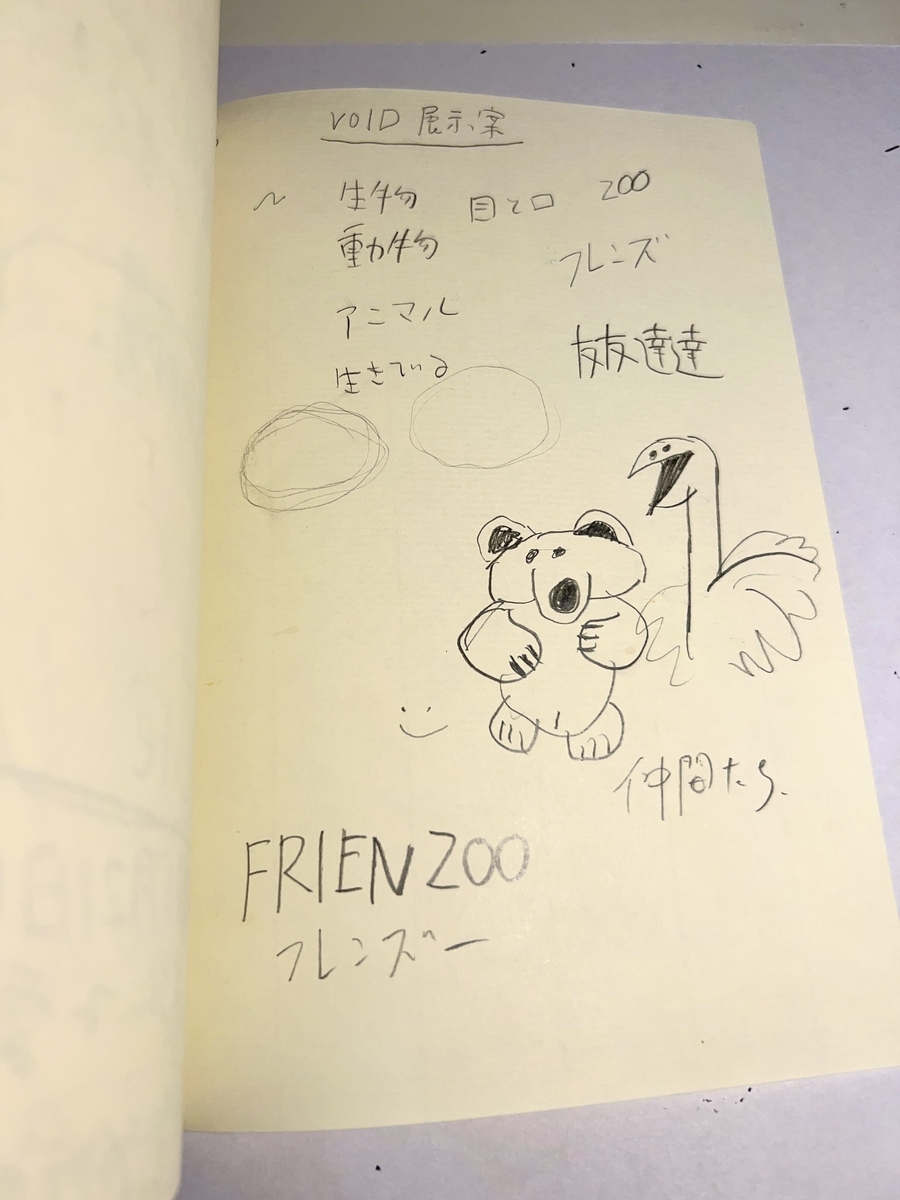 VOID 展示案
生物
目と口
ZOO
動物
フレンズ
アニマル
友友達達
生きている
仲間たち
FRIENZOO
フレンズー